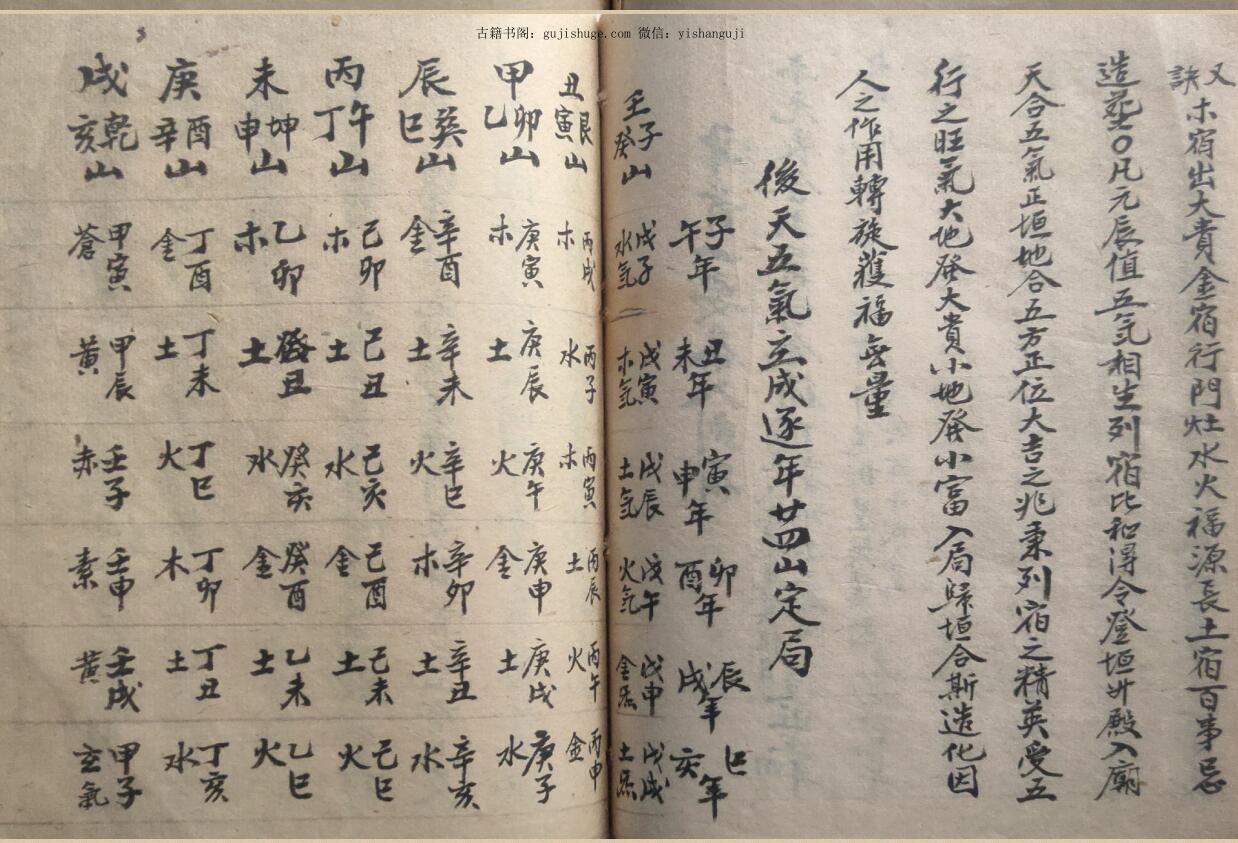 古籍书阁：gujishuge.com 微信：yishanguji
又訣 木宿出大貴金宿行門灶水火福源長土宿百事忌
造葬〇凡元辰值五气相生列宿比和得令登垣升殿入廟
天合五氣正垣地合五方正位大吉之兆秉列宿之精英受五
行之旺氣大地發大貴小地發小富入局歸垣合斯造化因
人之作用轉旋獲福無量
後天五氣立成逐年廿四山定局
子午年 丑未年 寅申年 卯酉年 辰戌年 巳亥年
壬子癸山 戊子水气 戊寅木气 戊辰土气 戊午火气 戊申金炁 戊戌土炁
丑艮寅山 丙戌木 丙子水 丙寅木 丙辰土 丙午火 丙申金
甲卯乙山 庚寅木 庚辰土 庚午火 庚申金 庚戌土 庚子水
辰巽巳山 辛酉金 辛未土 辛巳火 辛卯木 辛丑土 辛亥水
丙午丁山 己卯木 己丑土 己亥水 己酉金 己未土 己巳火
未坤申山 乙卯木 丑土 癸亥水 癸酉金 乙未土 乙巳火
庚酉辛山 丁酉金 丁未土 丁巳火 丁卯木 丁丑土 丁亥水
戌乾亥山 甲寅蒼 甲辰黄 壬子赤 壬申素 壬戌黄 甲子玄氣